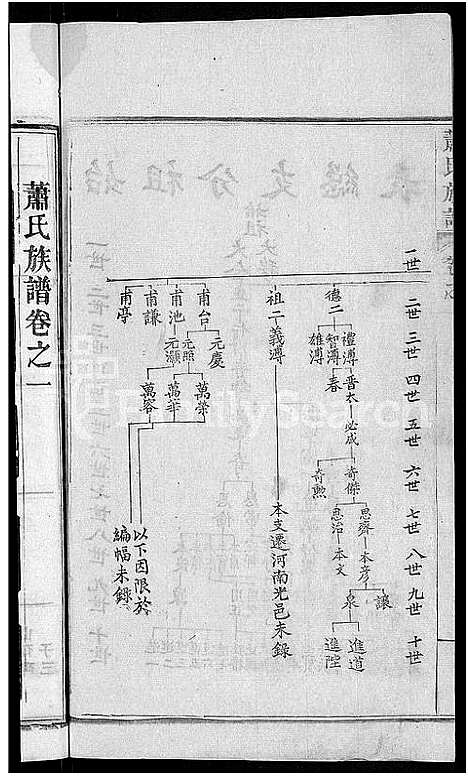 蕭氏族譜
一世 二世 三世 四世 五世 六世 七世 八世 九世 十世
德二
禮溥 晋太 必成 奇傑 思齊 本彦 讓
泉 進道
進陞
思治 本文
奇勲
智溥 春
雄溥
祖二 義溥 本支遷河南光邑未錄
甫台 元慶
元照 萬榮
萬華
甫池 元灝 萬容
甫謙
甫亭
以下因限於
編幅未錄
蕭氏族譜卷之一